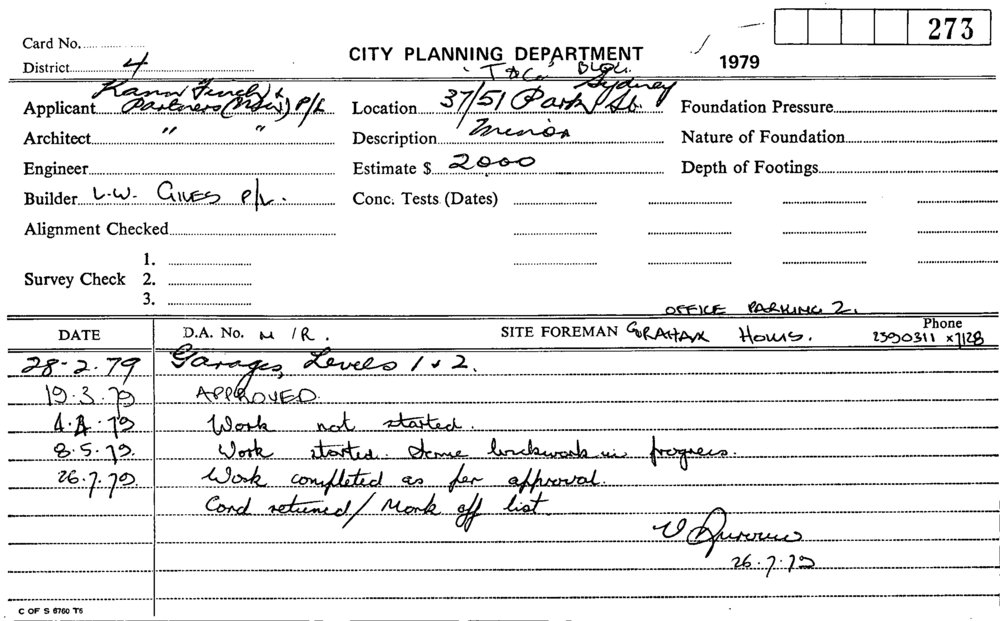 273
Card No.
CITY PLANNING DEPARTMENT 1979
District 4
"T & G" Bldg.
Applicant Kann Finch & Partners (NSW) P/L
Location 37/51 Park St. Sydney
Foundation Pressure
Architect " "
Description Minor
Nature of Foundation
Engineer
Estimate $ 2000
Depth of Footings
Builder L.W. GILES P/L.
Conc. Tests (Dates)
Alignment Checked
1.
Survey Check 2.
3.
OFFICE PARKING 2.
DATE D.A. No. M /R. SITE FOREMAN GRAHAM Phone 2390311 x7128
28-2.79 Garages, Levels 1 & 2.
19.3.79 APPROVED.
4.4.79 Work not started.
8.5.79. Work started. Some brickwork in progress.
26.7.79. Work completed as per approval.
Card returned/ Mark off list.
26.7.79
C OF S 6760 T6